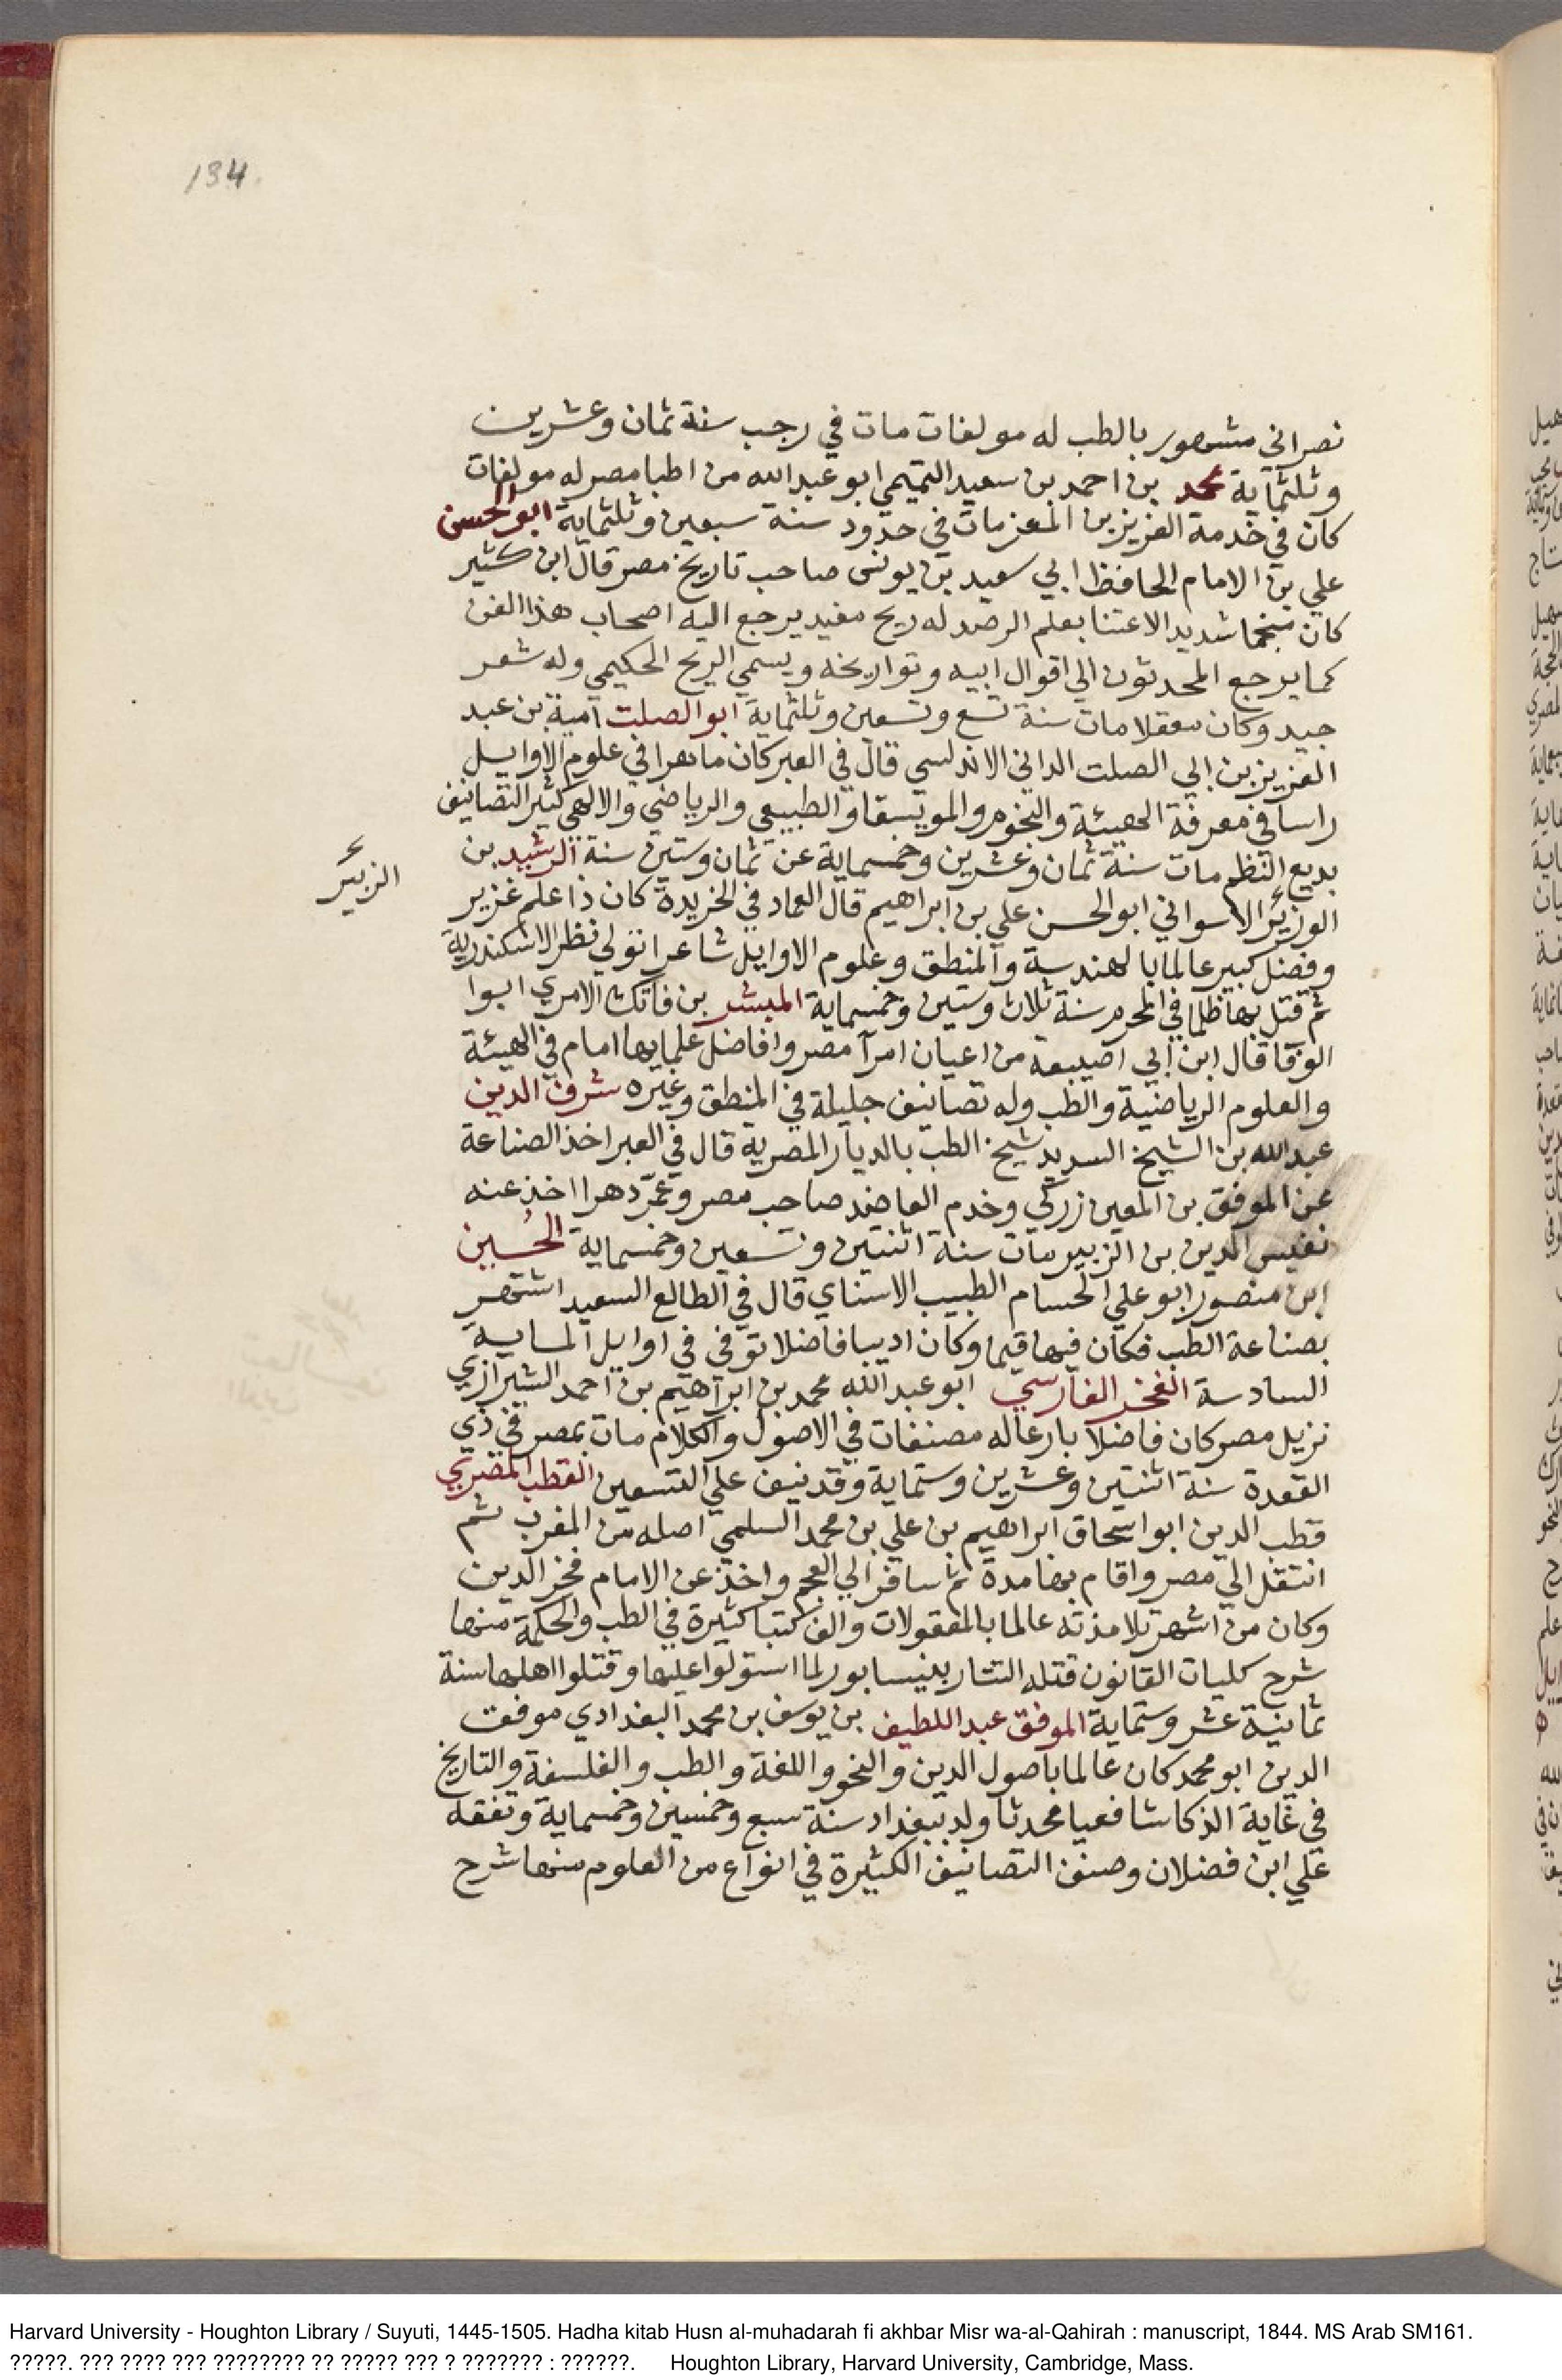 134.
نصرانى مشهور بالطب له مولفات مات في رجب سنة ثمان وعشرين
وثلثماية محمد بن احمد بن سعيد التميمي ابو عبد الله من اطبا مصر له مولفات
كان في خدمة العزيز بن المعز مات في حدود سنة سبعين وثلثماية ابو الحسن
علي بن الامام الحافظ ابي سعيد بن يونس صاحب تاريخ مصر قال ابن كثير
كان منجما شديد الاعتنا بعلم الرصد له ريح مفيد يرجع اليه اصحاب هذا الفن
كما يرجع المحدثون الي اقوال ابيه وتواريخه ويسمي الريح الحكيمي وله شعر
جيد وكان معقلا مات سنة تسع وتسعين وثلثماية ابو الصلت امية بن عبد
العزيز بن ابي الصلت الداني الاندلسي قال في العبر كان ماهرا في علوم الاوايل
راسا في معرفة الهيئة والنجوم والموسيقا والطبيعي والرياضي والالهي كثير التصانيف
بديع النظم مات سنة ثمان وعشرين وخمسماية عن ثمان وستين سنة الرشيد بن
الوزير الاسواني ابو الحسن علي بن ابراهيم قال العماد في الخريدة كان ذا علم غزير
الزبير
وفضل كبير عالما بالهندسة والمنطق وعلوم الاوايل شاعرا تولي نظر الاسكندرية
ثم قتل بها ظلما في المحرم سنة ثلاث وستين وخمسماية المبشر بن فاتك الامري ابوا
الوفا قال ابن ابي اصيبعة من اعيان امرآ مصر وافاضل علمايها امام في الهيئة
والعلوم الرياضية والطب وله تصانيف جليلة في المنطق وغيره شرف الدين
عبد الله بن الشيخ السديد شيخ الطب بالديار المصرية قال في العبر اخذ الصناعة
عن الموفق بن المعين زركي وخدم العاضد صاحب مصر وعمر دهرا اخذ عنه
نفيس الدين بن الزبير مات سنة اثنتين وتسعين وخمسماية الحُسين
ابن منصور ابو علي الحسام الطبيب الاسناي قال في الطالع السعيد اشتهر
بصناعة الطب فكان فيها قيما وكان اديبا فاضلا توفى في اوايل الماية
السادسة الفخر الفارسي ابو عبد الله محمد بن ابراهيم بن احمد الشيرازي
نزيل مصر كان فاضلا بارعا له مصنفات في الاصول والكلام مات بمصر في ذي
القعدة سنة اثنتين وعشرين وستماية وقد نيف علي التسعين القطب المصري
قطب الدين ابو اسحاق ابراهيم بن علي بن محمد السلمي اصله من المغرب ثم
انتقل الي مصر واقام بها مدة ثم سافر الي العجم واخذ عن الامام فخر الدين
وكان من اشهر تلامذته عالما بالمعقولات والف كتبا كثيرة في الطب والحكمة منها
شرح كليات القانون قتله التتار بنيسابور لما استولوا عليها وقتلوا اهلها سنة
ثمانية عشر وستماية الموفق عبد اللطيف بن يوسف بن محمد البغدادي موفق
الدين ابو محمد كان عالما باصول الدين والنحو واللغة والطب والفلسفة والتاريخ
في غاية الذكا شافعيا محدثا ولد ببغداد سنة سبع وخمسين وخمسماية وتفقه
علي ابن فضلان وصنف التصانيف الكثيرة في انواع من العلوم منها شرح
Harvard University - Houghton Library / Suyuti, 1445-1505. Hadha kitab Husn al-muhadarah fi akhbar Misr wa-al-Qahirah : manuscript, 1844. MS Arab SM161.
?????. ??? ???? ??? ???????? ?? ????? ??? ? ??????? : ??????. Houghton Library, Harvard University, Cambridge, Mass.